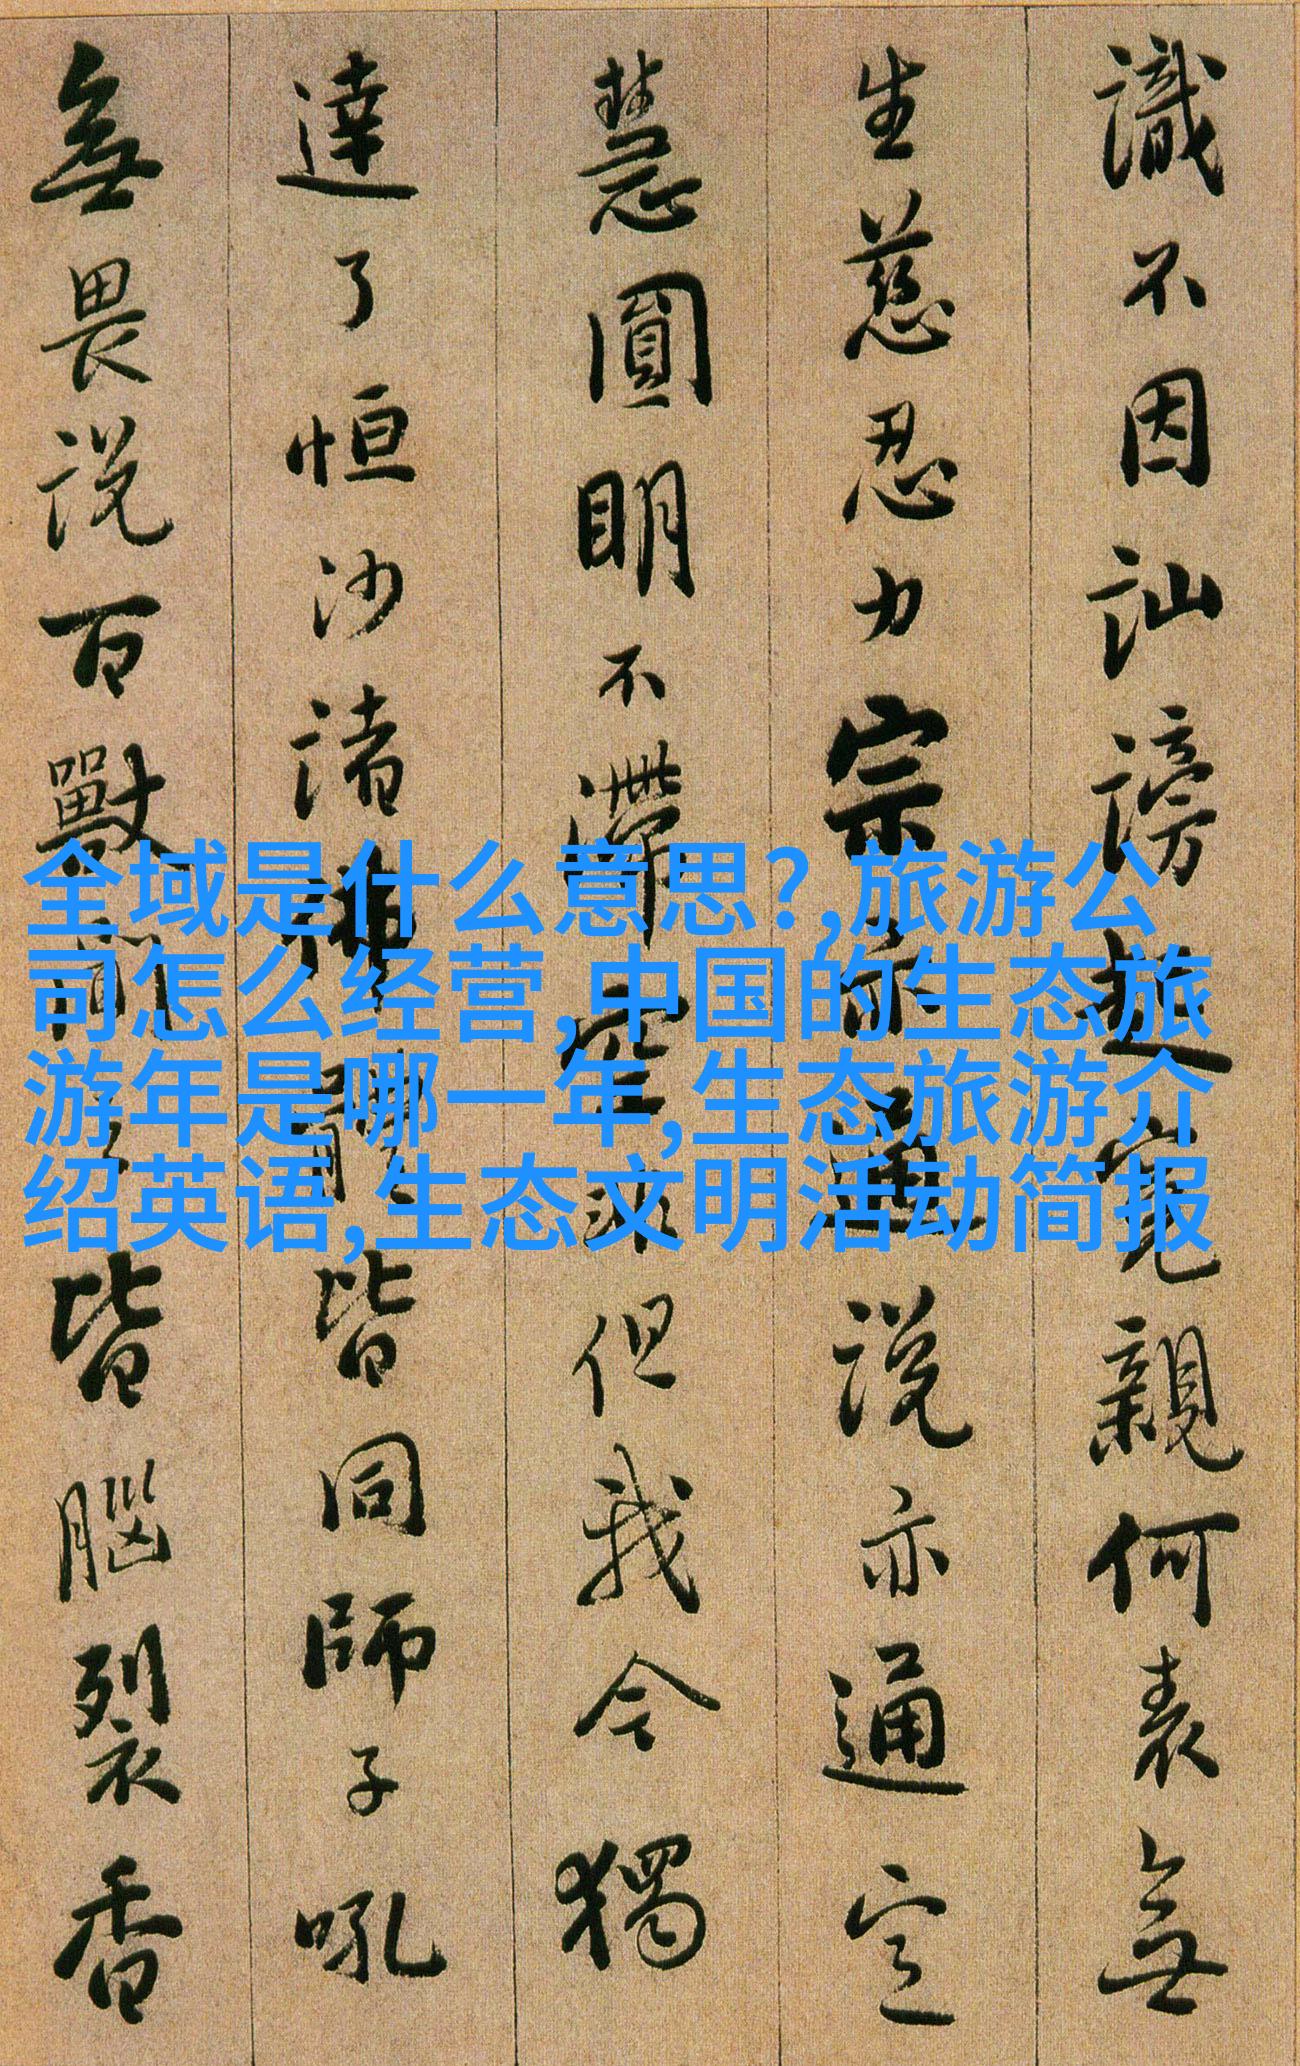 識不因訕謗起寃親何表無
生慈忍力宗亦通説亦通定
慧圓明不滯空非但我今獨
達了恒沙諸佛體皆同師子吼
無畏説百獸聞皆腦裂香
全域是什么意思?,旅游公
司怎么经营,中国的生态旅
游年是哪一年,生态旅游介
绍英语,生态文明活动简报